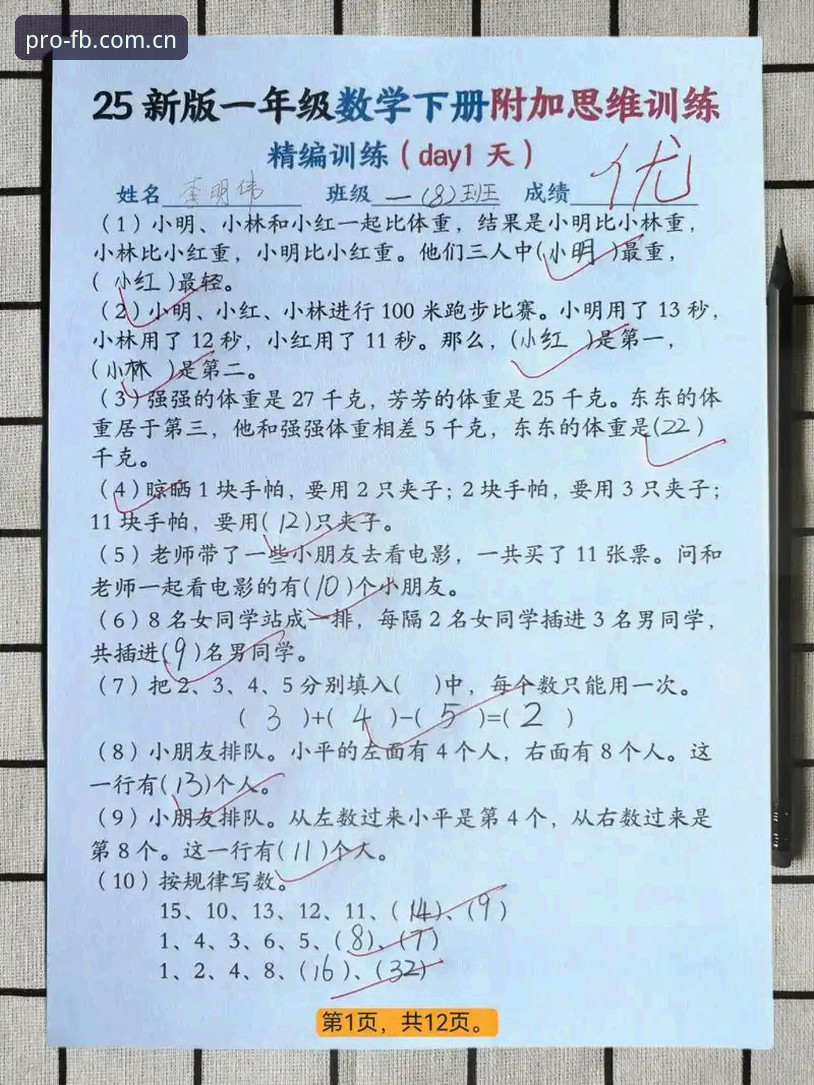 pro-fb.com.cn
25新版一年级数学下册附加思维训练
精编训练（day1 天）
姓名 李明伟 班级 一(8)班 成绩 优
（1）小明、小林和小红一起比体重，结果是小明比小林重，
小林比小红重，小明比小红重。他们三人中(小明)最重，
(小红)最轻。
（2）小明、小红、小林进行100米跑步比赛。小明用了13秒，
小林用了12秒，小红用了11秒。那么，(小红)是第一，
(小林)是第二。
（3）强强的体重是27千克，芳芳的体重是25千克。东东的体
重居于第三，他和强强体重相差5千克，东东的体重是(22)
千克。
（4）晾晒1块手帕，要用2只夹子；2块手帕，要用3只夹子；
11块手帕，要用(12)只夹子。
（5）老师带了一些小朋友去看电影，一共买了11张票。问和
老师一起看电影的有(10)个小朋友。
（6）8名女同学站成一排，每隔2名女同学插进3名男同学，
共插进(9)名男同学。
（7）把2、3、4、5分别填入(　)中，每个数只能用一次。
(3)+(4)-(5)=(2)
（8）小朋友排队。小平的左面有4个人，右面有8个人。这
一行有(13)个人。
（9）小朋友排队。从左数过来小平是第4个，从右数过来是
第8个。这一行有(11)个人。
（10）按规律写数。
15、10、13、12、11、(14)、(9)
1、4、3、6、5、(8)、(7)
1、2、4、8、(16)、(32)
第1页，共12页。